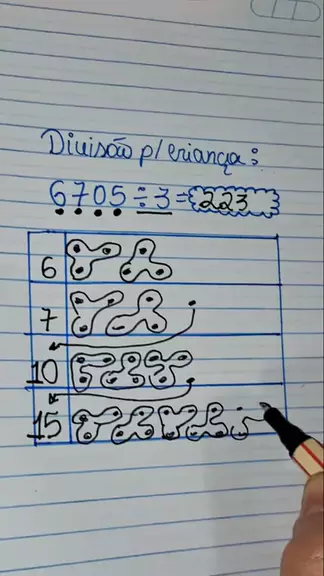 Divisão p/ criança:
6705 ÷ 3 = 223
6
7
10
15